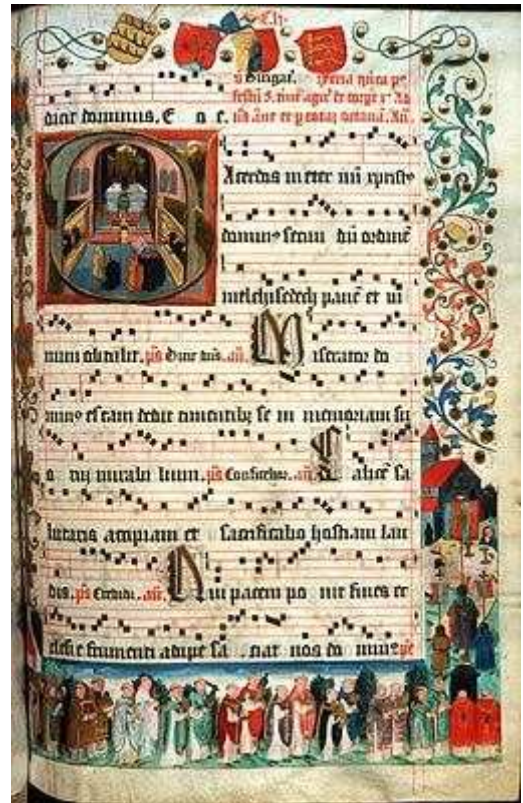 dicit dominus. E o e.
Acerdos in eter nū xpistꝰ
dominꝰ secun dū ordinē
melchisedech panē et vi
num obtulit. ps Dixit dñs. añ. Miserator do
minꝰ escam dedit timentibꝫ se in memoriam su
o rū mirabi lium. ps Confitebor. añ. Calicē sa
lutaris accipiam et sacrificabo hostiam lau
dis. ps Credidi. añ. Qui pacem po nit fines ec
clesie frumenti adipe sa ciat nos do minꝰ